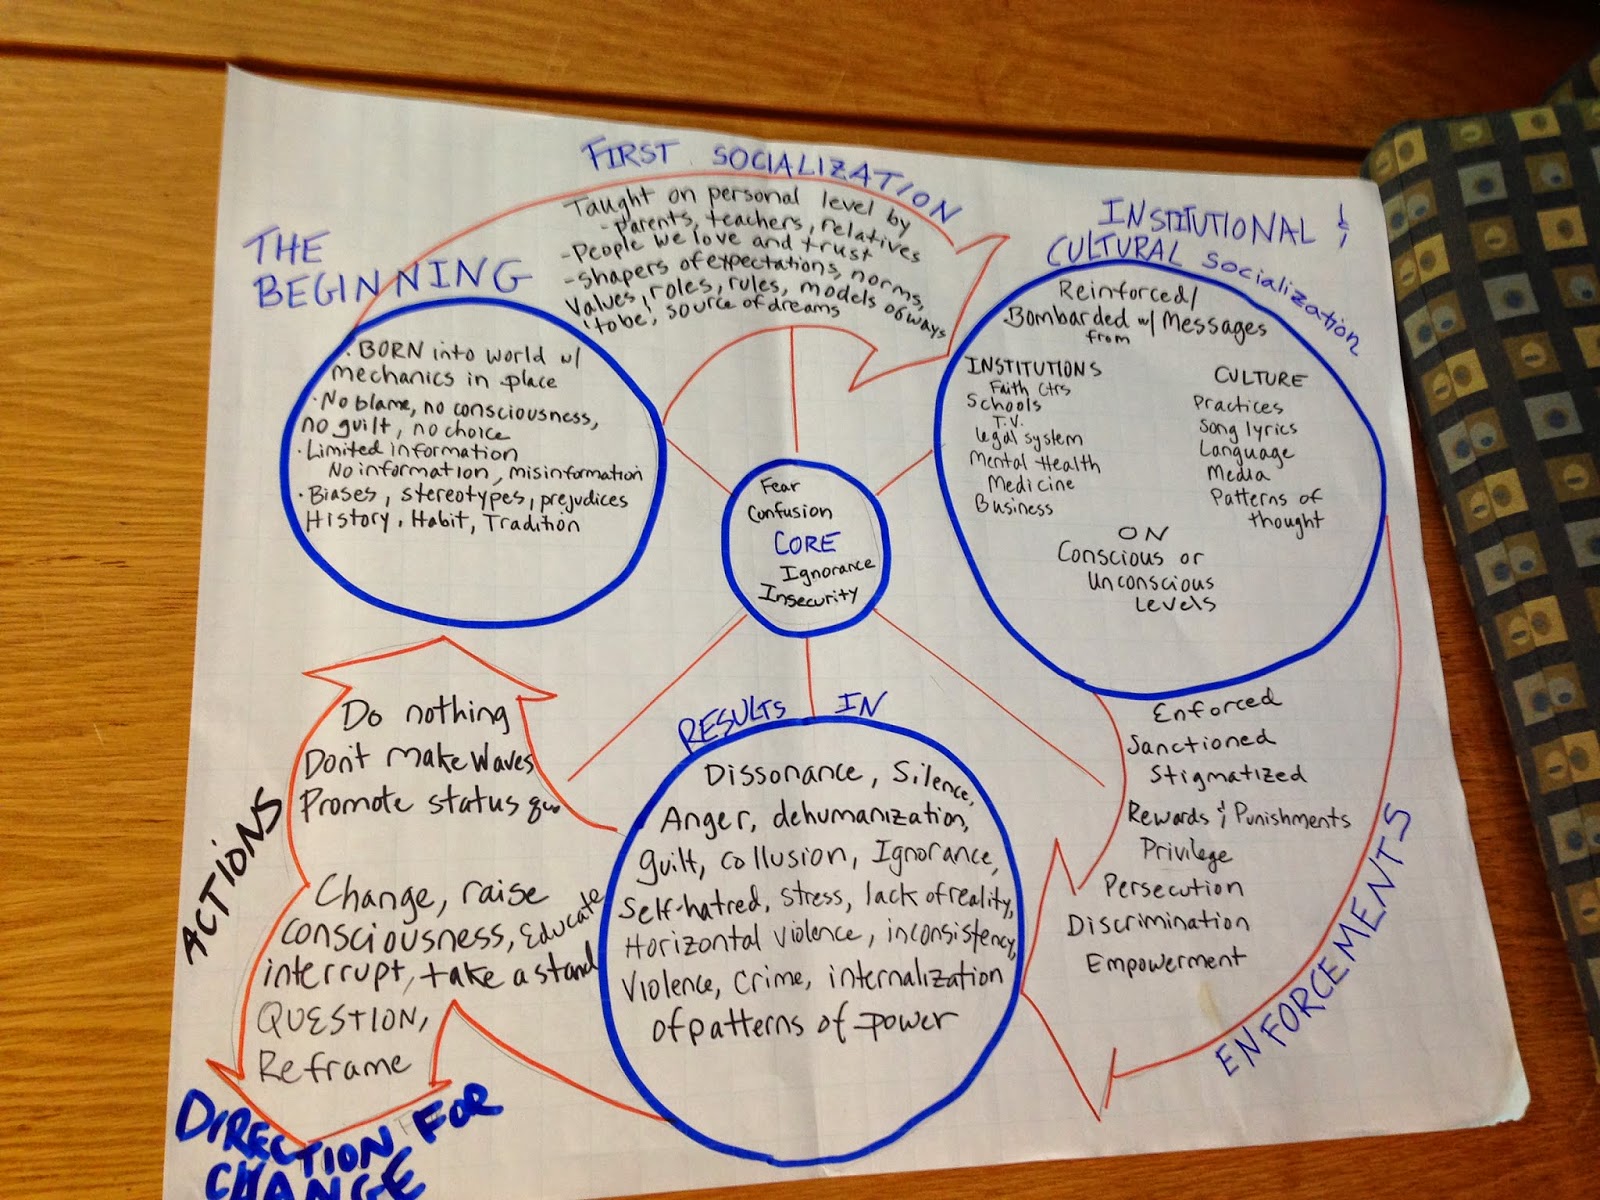 THE
BEGINNING
· BORN into world w/
mechanics in place
· No blame, no consciousness,
no guilt, no choice
· Limited information
No information, misinformation
· Biases, stereotypes, prejudices
History, Habit, Tradition
FIRST SOCIALIZATION
Taught on personal level by
- parents, teachers, relatives
- People we love and trust
- Shapers of expectations, norms,
Values, roles, rules, models of ways
to be, source of dreams
INSTITUTIONAL &
CULTURAL Socialization
Reinforced/
Bombarded w/ Messages
from
INSTITUTIONS
Faith Ctrs
Schools
T.V.
legal system
Mental Health
Medicine
Business
CULTURE
Practices
Song lyrics
Language
Media
Patterns of
thought
ON
Conscious or
Unconscious
Levels
Fear
Confusion
CORE
Ignorance
Insecurity
Enforced
Sanctioned
Stigmatized
Rewards & Punishments
Privilege
Persecution
Discrimination
Empowerment
ENFORCEMENTS
RESULTS IN
Dissonance, Silence,
Anger, dehumanization,
guilt, collusion, Ignorance,
Self-hatred, stress, lack of reality,
Horizontal violence, inconsistency,
Violence, Crime, internalization
of patterns of power
ACTIONS
Do nothing
Dont make waves
Promote status quo
Change, raise
consciousness, Educate
interrupt, take a stand
QUESTION,
Reframe
DIRECTION FOR
CHANGE